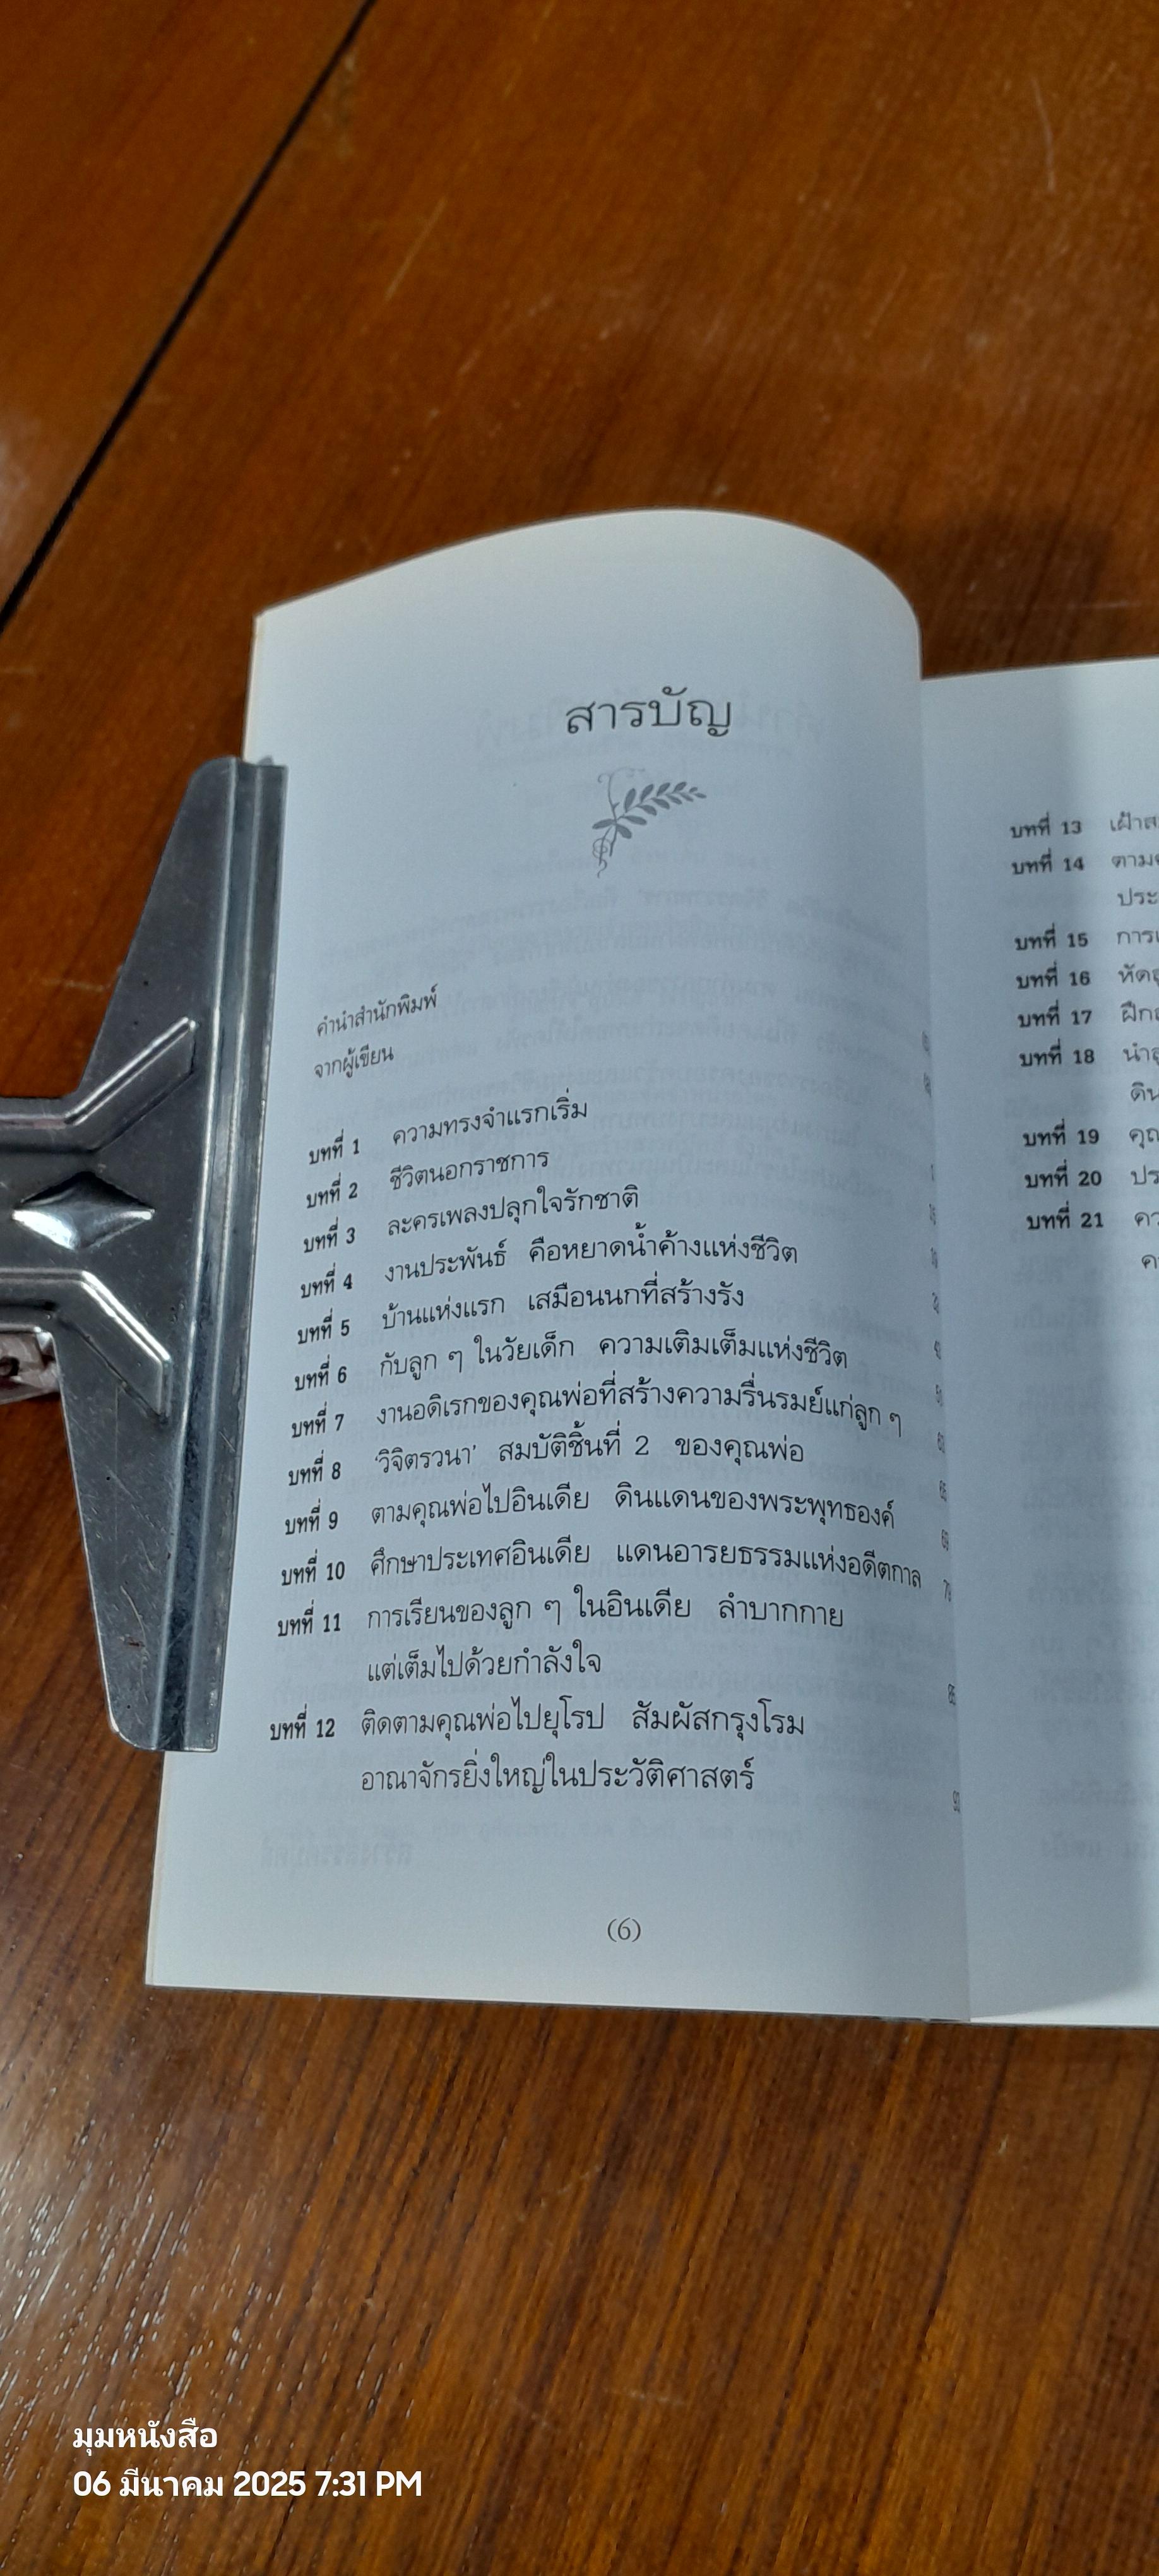 สารบัญ
คำนำสำนักพิมพ์
จากผู้เขียน
บทที่ 1 ความทรงจำแรกเริ่ม
บทที่ 2 ชีวิตนอกราชการ
บทที่ 3 ละครเพลงปลุกใจรักชาติ
บทที่ 4 งานประพันธ์ คือหยาดน้ำค้างแห่งชีวิต
บทที่ 5 บ้านแห่งแรก เสมือนนกที่สร้างรัง
บทที่ 6 กับลูก ๆ ในวัยเด็ก ความเติมเต็มแห่งชีวิต
บทที่ 7 งานอดิเรกของคุณพ่อที่สร้างความรื่นรมย์แก่ลูก ๆ
บทที่ 8 ‘วิจิตรวนา’ สมบัติชิ้นที่ 2 ของคุณพ่อ
บทที่ 9 ตามคุณพ่อไปอินเดีย ดินแดนของพระพุทธองค์
บทที่ 10 ศึกษาประเทศอินเดีย แดนอารยธรรมแห่งอดีตกาล
บทที่ 11 การเรียนของลูก ๆ ในอินเดีย ลำบากกาย
แต่เต็มไปด้วยกำลังใจ
บทที่ 12 ติดตามคุณพ่อไปยุโรป สัมผัสกรุงโรม
อาณาจักรยิ่งใหญ่ในประวัติศาสตร์
(6)
บทที่ 13
บทที่ 14
บทที่ 15
บทที่ 16
บทที่ 17
บทที่ 18
บทที่ 19
บทที่ 20
บทที่ 21
มุมหนังสือ
06 มีนาคม 2025 7:31 PM